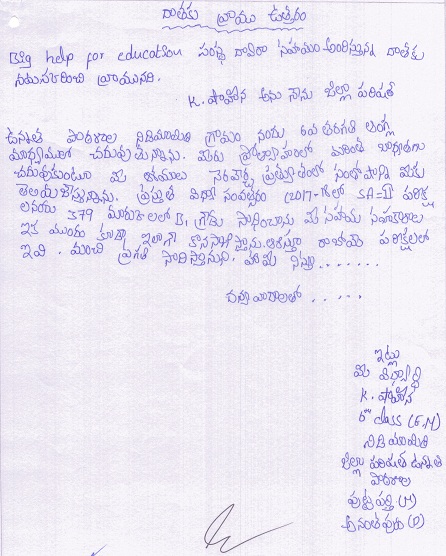 దాతకు వ్రాయు ఉత్తరం
Big help for education సంస్థ ద్వారా సహాయం అందిస్తున్న దాతకు
నమస్కరించి వ్రాయునది.
K. షాహిన అను నేను జిల్లా పరిషత్
ఉన్నత పాఠశాల నిడిమామిడి గ్రామం నందు 6వ తరగతి ఆంగ్ల
మాధ్యమంలో చదువుతున్నాను. మీరు ప్రోత్సాహంలో
చదువుకుంటూ మీ
తెలియజేస్తున్నాను. ప్రస్తుత విద్యా సంవత్సరం (2017-18లో SA-II పరీక్ష
లనందు 379 మార్కులలో B1 గ్రేడు సాధించాను మీ సహాయ సహకారాలు
ఇక ముందు కూడా ఇలాగే కొనసాగిస్తారని ఆశిస్తూ రాబోయే పరీక్షలలో
ఇవి. మంచి ప్రగతి సాధిస్తానని. హామీ నిస్తూ.......
ధన్యవాదాలతో .....
ఇట్లు
మీ విద్యార్థి
K. షాహిన
6th class (E.M)
నిడిమామిడి
జిల్లా పరిషత్ ఉన్నత
పాఠశాల
పుట్టపర్తి (M)
అనంతపురం (D)